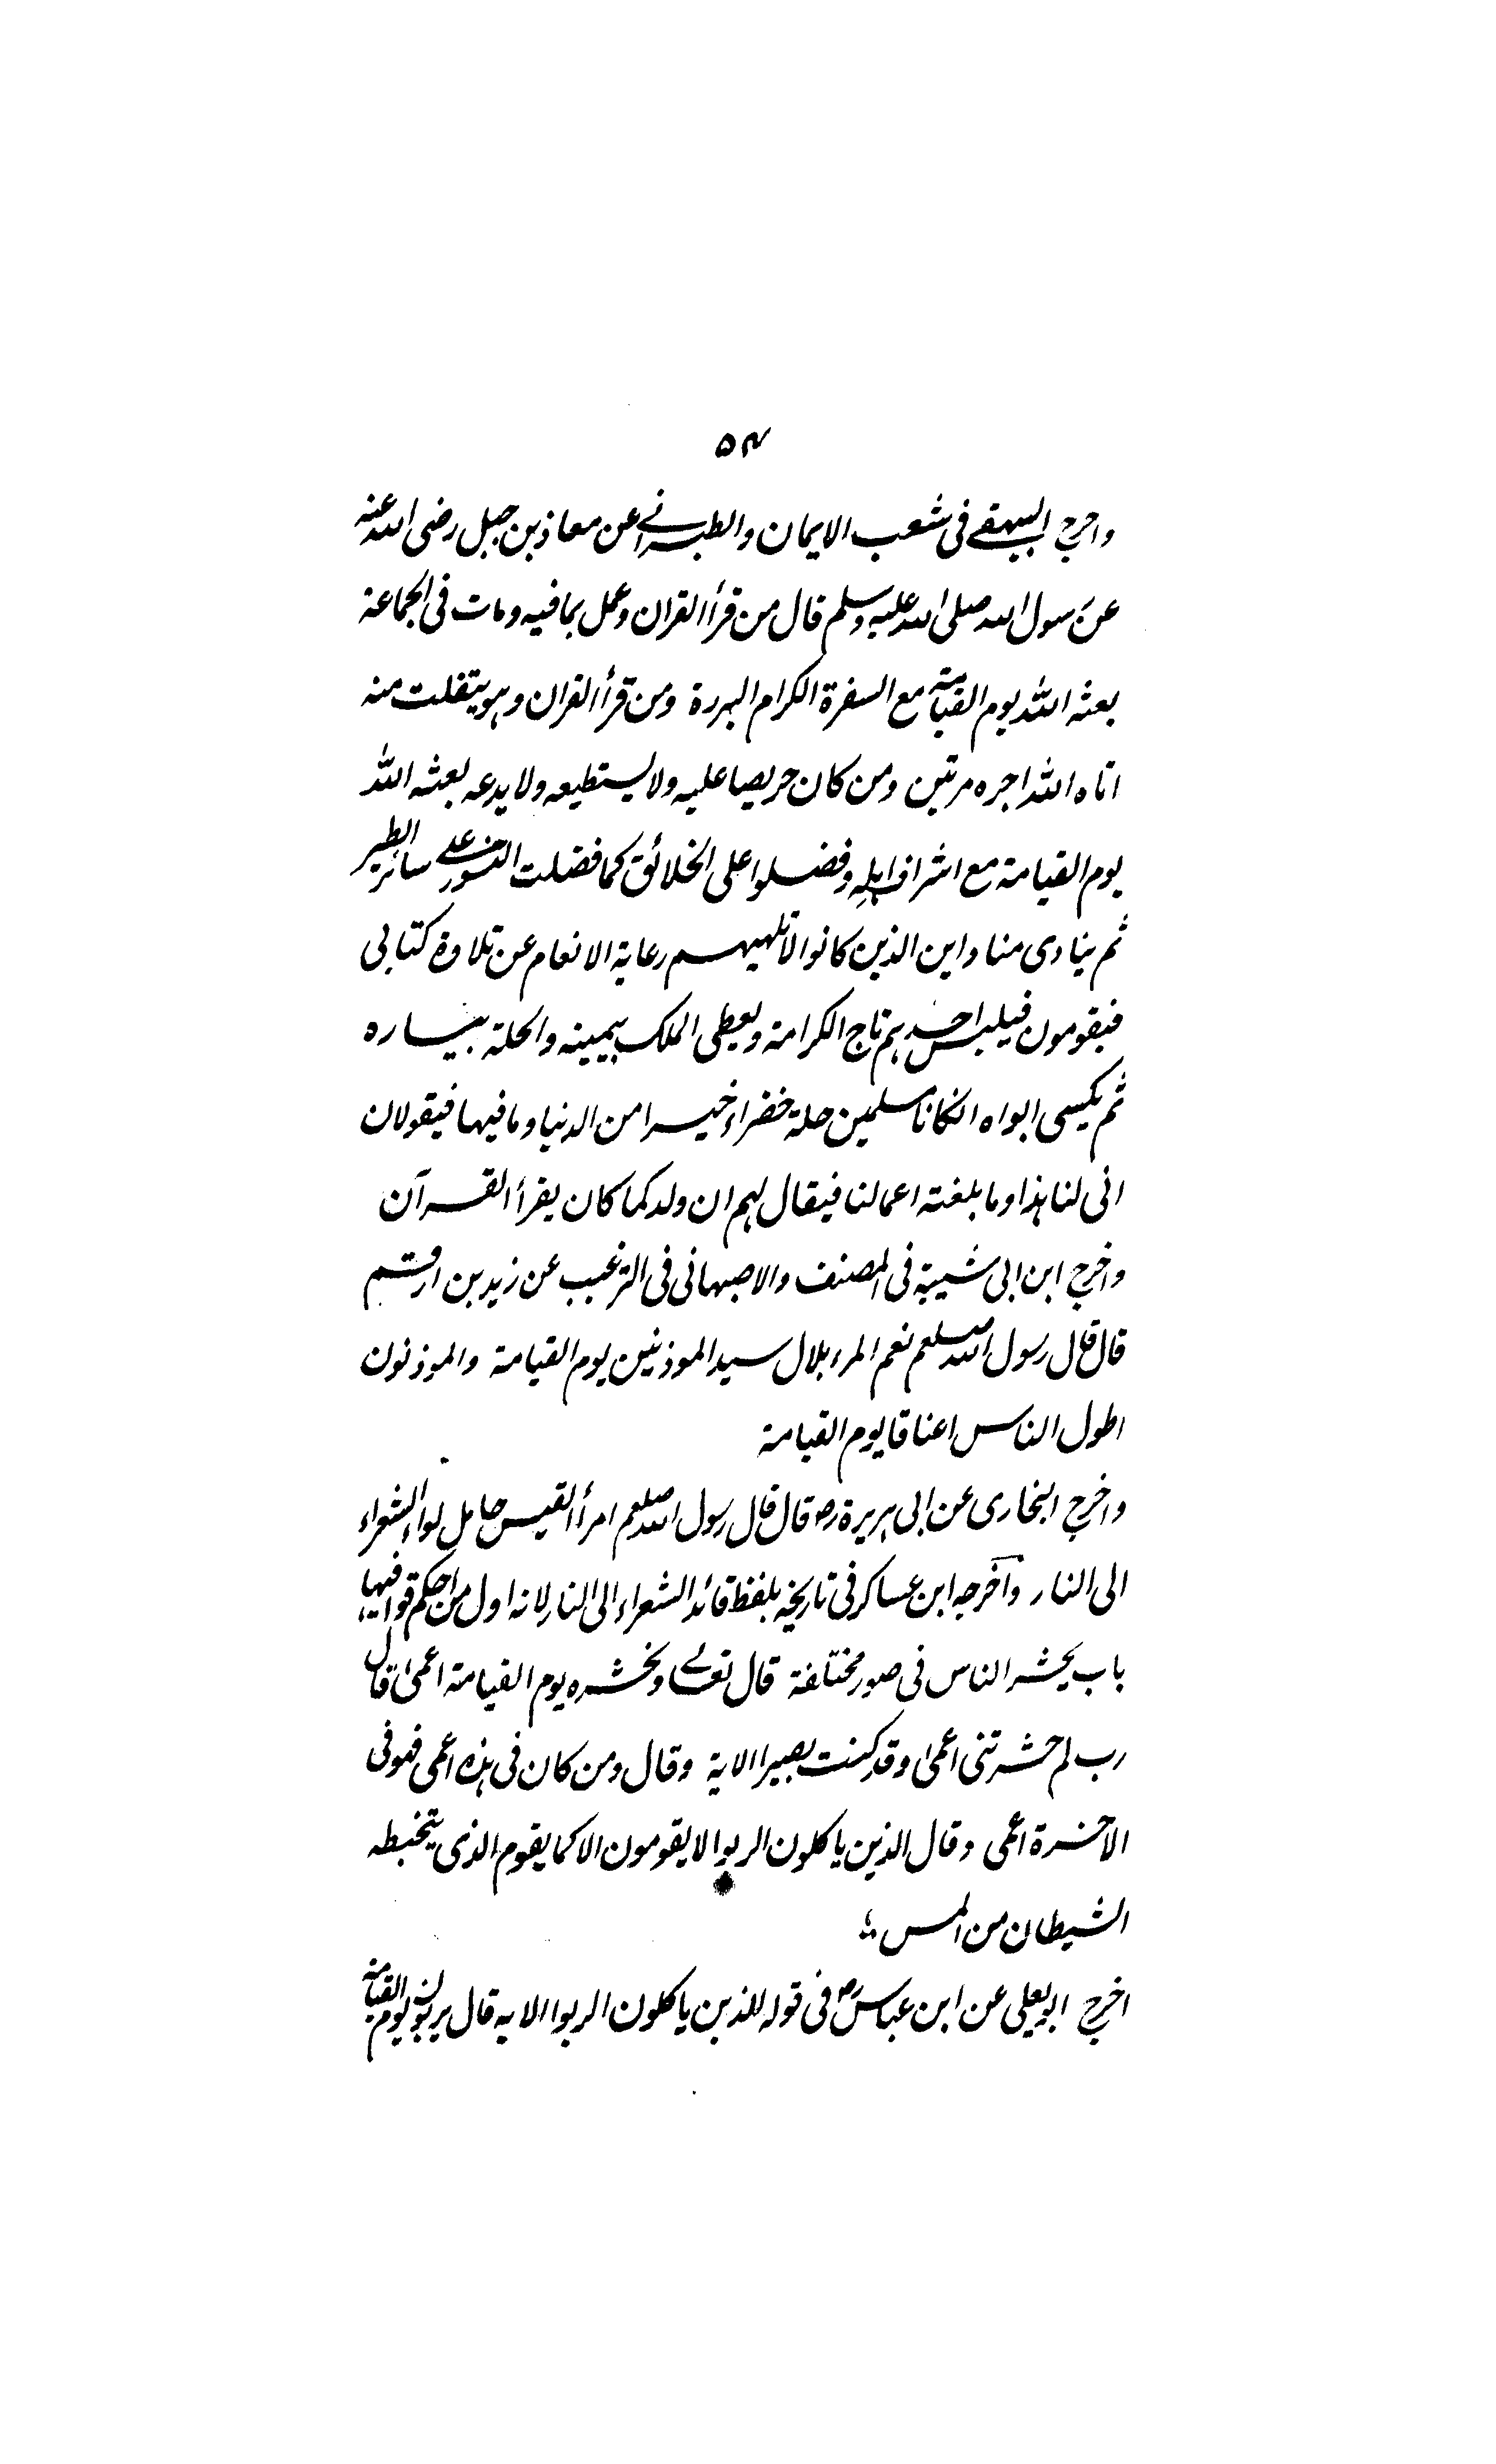 ۵۴
واخرج البیهقے فی شعب الایمان والطبرانے عن معاذ بن جبل رضی الله عنه
عن رسول الله صلی الله علیه وسلم قال من قرأ القران وعمل بما فیه ومات فی الجماعة
بعثه الله یوم القیامة مع السفرة الکرام البررة ومن قرأ القران وهو یتفلت منه
اتاه الله اجره مرتین ومن کان حریصا علیه ولا یستطیعه ولا یدعه بعثه الله
یوم القیامة مع اشراف اهله وفضلوا علی الخلائق کما فضلت النسور علے سائر الطیر
ثم ینادی مناد این الذین کانوا لا تلهیهم رعایة الانعام عن تلاوة کتابی
فیقومون فیلبس احدهم تاج الکرامة ویعطی الملک بیمینه والحلة بیساره
ثم یکسی ابواه انکانا مسلمین حلة خضراء خیرا من الدنیا وما فیها فیقولان
انی لنا هذا وما بلغته اعمالنا فیقال لهم ان ولدکما کان یقرأ القرآن
واخرج ابن ابی شیبة فی المصنف والاصبهانی فی الترغیب عن زید بن ارقم
قال قال رسول الله صلعم نعم المرء بلال سید الموذنین یوم القیامة والموذنون
اطول الناس اعناقا یوم القیامة
واخرج البخاری عن ابی هریرة رض قال قال رسول الله صلعم امرأ القیس حامل لواء الشعراء
الی النار وآخرجه ابن عساکر فی تاریخه بلفظ قائد الشعراء الی النار لانه اول من احکم قوافیها
باب یحشر الناس فی صور مختلفة قال تعالے ونحشره یوم القیامة اعمیٰ قال
رب لم حشرتنی اعمیٰ وقد کنت بصیرا الایة وقال ومن کان فی هذه اعمی فهو فی
الآخرة اعمی وقال الذین یاکلون الربوا لا یقومون الا کما یقوم الذی یتخبطه
الشیطان من المس
اخرج ابو یعلی عن ابن عباس رض فی قوله للذین یاکلون الربوا الایه قال یوم القیامة